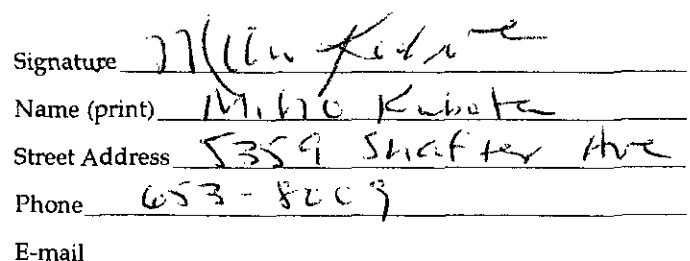 Signature
Name (print) Miho Kubota
Street Address 5359 Shafter Ave
Phone 653-8009
E-mail